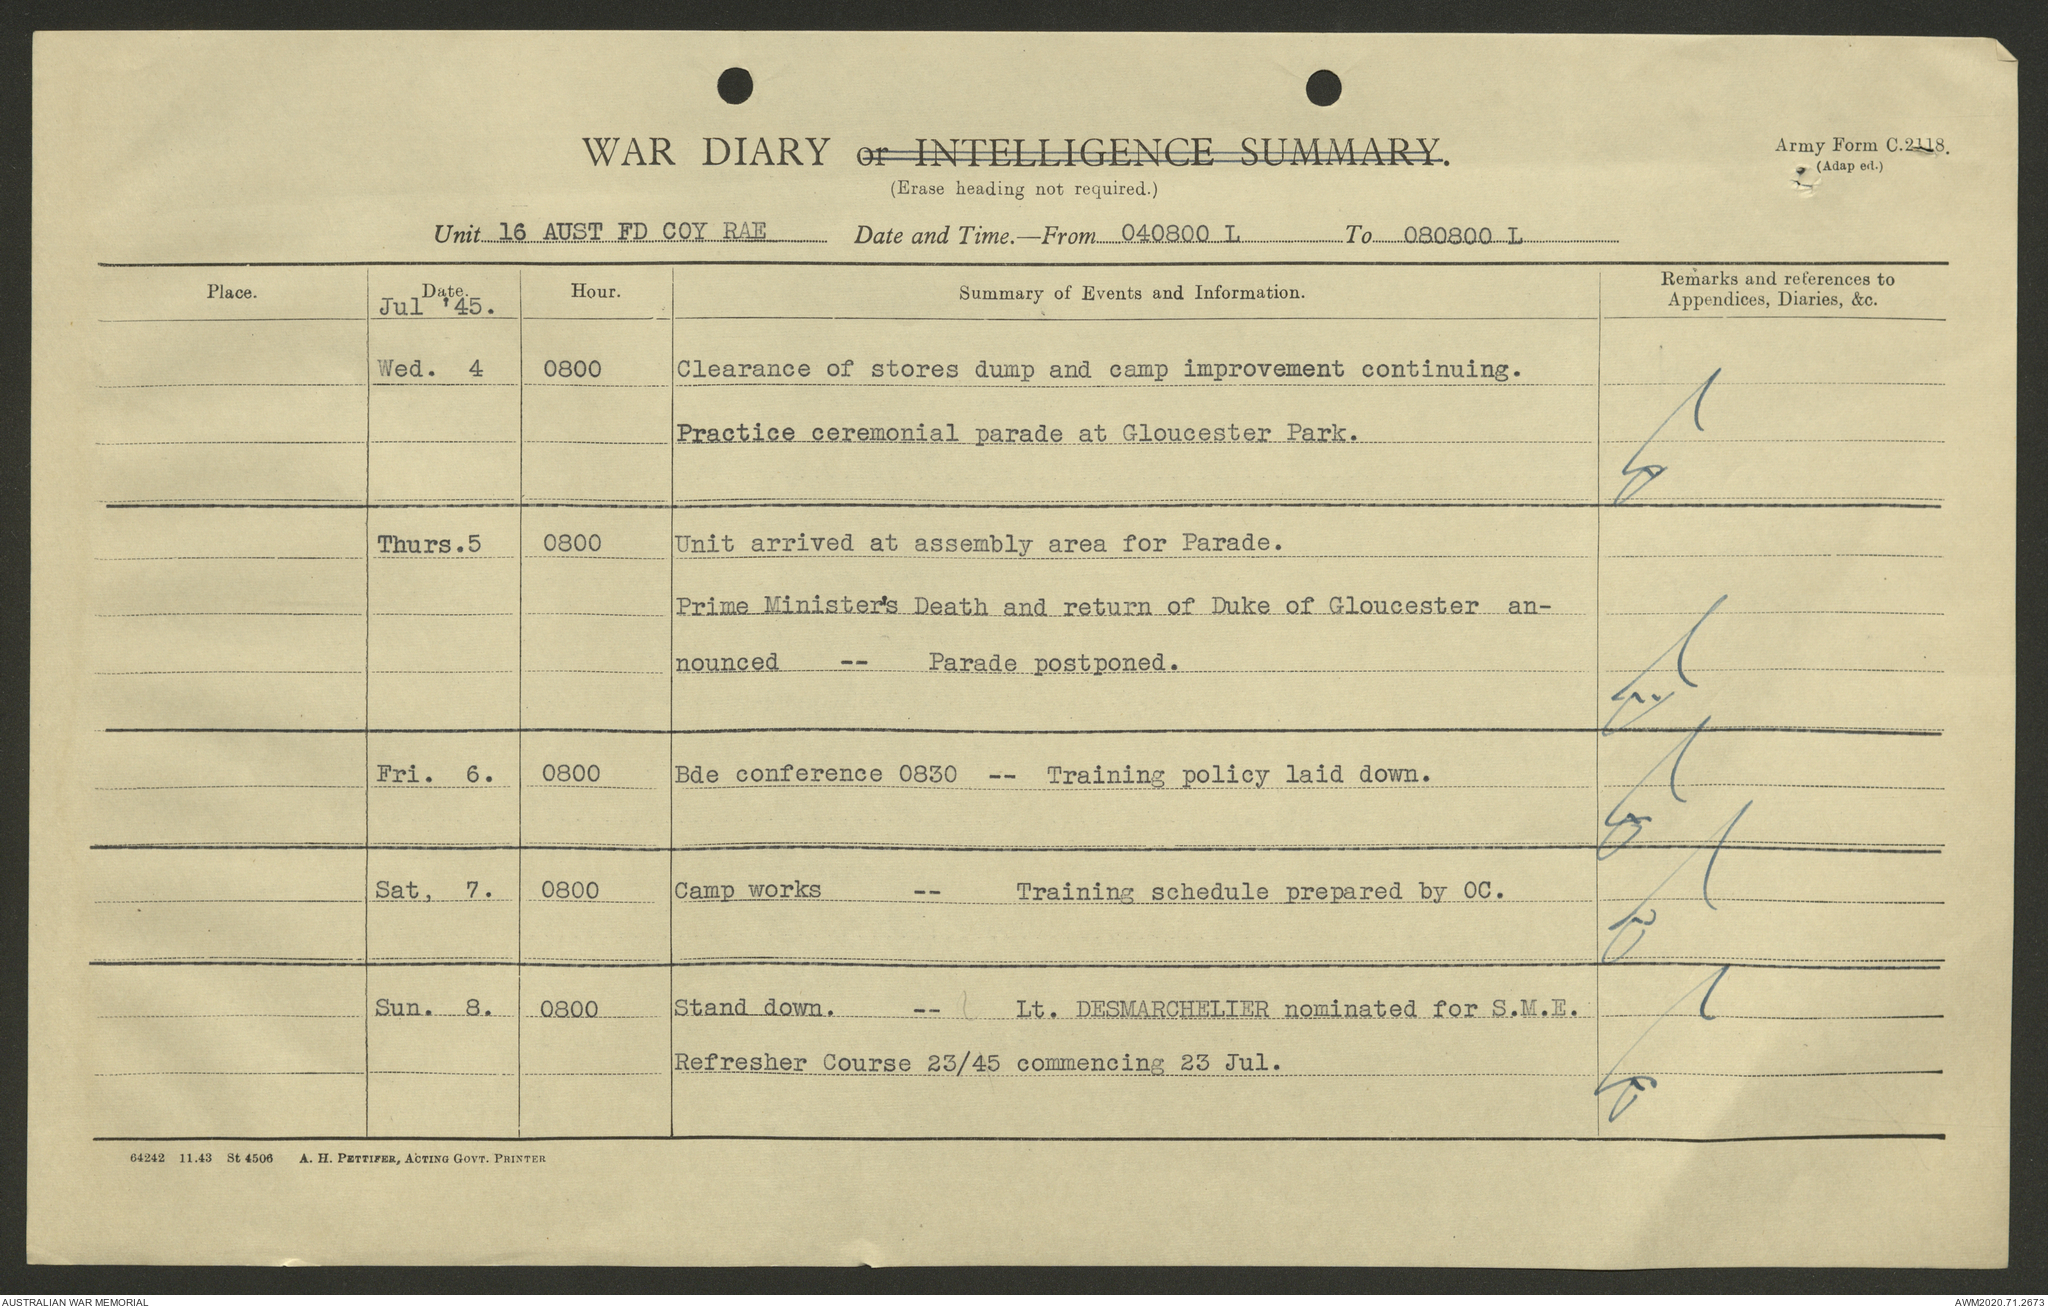 WAR DIARY or INTELLIGENCE SUMMARY.
Army Form C.2118.
(Adap ed.)
(Erase heading not required.)
Unit 16 AUST FD COY RAE Date and Time.—From 040800 L To 080800 L
Place. Date. Hour. Summary of Events and Information. Remarks and references to
Appendices, Diaries, &c.
Jul '45.
Wed. 4 0800 Clearance of stores dump and camp improvement continuing.
Practice ceremonial parade at Gloucester Park.
Thurs.5 0800 Unit arrived at assembly area for Parade.
Prime Minister's Death and return of Duke of Gloucester an-
nounced -- Parade postponed.
Fri. 6. 0800 Bde conference 0830 -- Training policy laid down.
Sat, 7. 0800 Camp works -- Training schedule prepared by OC.
Sun. 8. 0800 Stand down. -- Lt. DESMARCHELIER nominated for S.M.E.
Refresher Course 23/45 commencing 23 Jul.
64242 11.43 St 4506 A. H. PETTIFER, ACTING GOVT. PRINTER
AUSTRALIAN WAR MEMORIAL AWM2020.71.2673